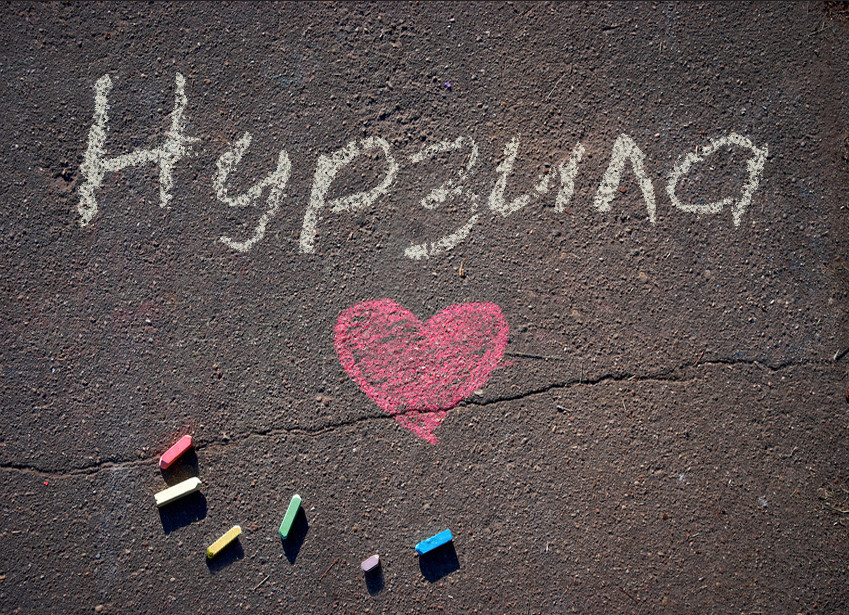 Нурзила